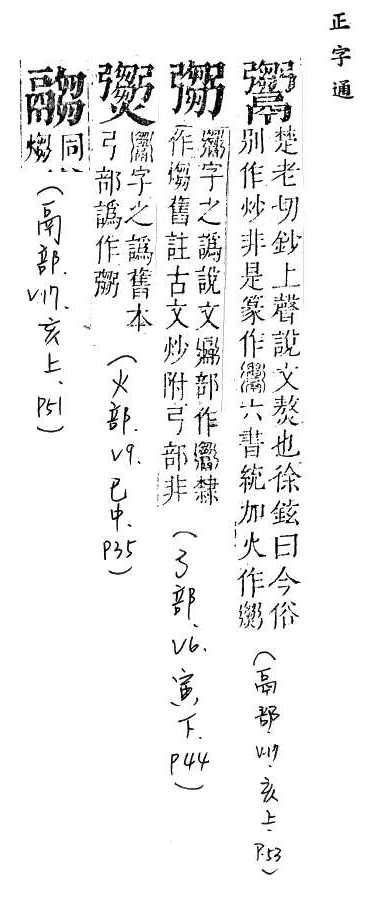 正字通
𩱦
楚老切鈔上聲說文熬也徐鉉曰今俗
別作炒非是篆作𩱦六書統加火作
(鬲部.V17.亥上.P.53)
字之譌說文䰜部作𩱦隸
作煼舊註古文炒附弓部非
(弓部.V6.寅下.P44)
字之譌舊本
弓部譌作
(火部.V9.巳中.P35)
同
煼
(鬲部.V17.亥上.P51)